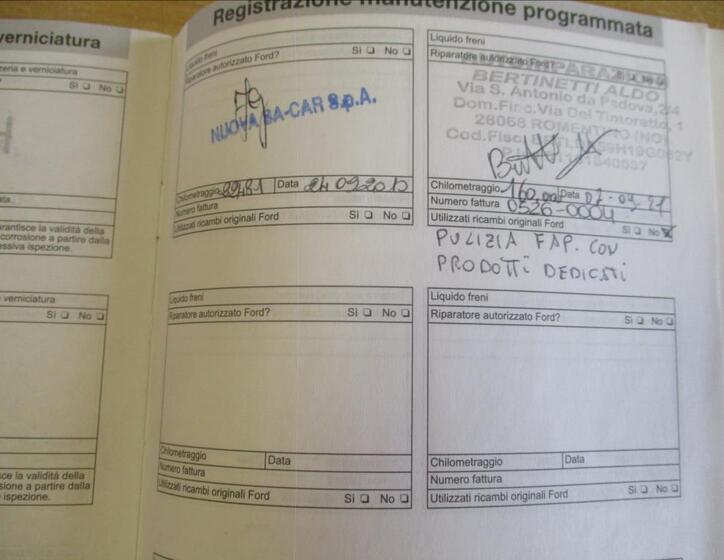 Registrazione manutenzione programmata
verniciatura
zeria e verniciatura
Sì ❏ No ❏
ata
arantisce la validità della
corrosione a partire dalla
essiva ispezione.
verniciatura
Sì ❏ No ❏
sce la validità della
sione a partire dalla
ispezione.
Liquido freni
Riparatore autorizzato Ford? Sì ❏ No ❏
NUOVA SA-CAR S.p.A.
Chilometraggio Data 24 09 20
Numero fattura
Utilizzati ricambi originali Ford Sì ❏ No ❏
Liquido freni
Riparatore autorizzato Ford? Sì ❏ No ❏
BERTINETTI ALDO
Via S. Antonio da Padova, 2/4
Dom.Fisc.Via Del Tintoretto, 1
28068 ROMENTINO (NO)
Cod.Fisc.
Chilometraggio 160.000 Data 07-04-21
Numero fattura 0526-0004
Utilizzati ricambi originali Ford Sì ❏ No
PULIZIA FAP. CON
PRODOTTI DEDICATI
Liquido freni
Riparatore autorizzato Ford? Sì ❏ No ❏
Chilometraggio Data
Numero fattura
Utilizzati ricambi originali Ford Sì ❏ No ❏
Liquido freni
Riparatore autorizzato Ford? Sì ❏ No ❏
Chilometraggio Data
Numero fattura
Utilizzati ricambi originali Ford Sì ❏ No ❏